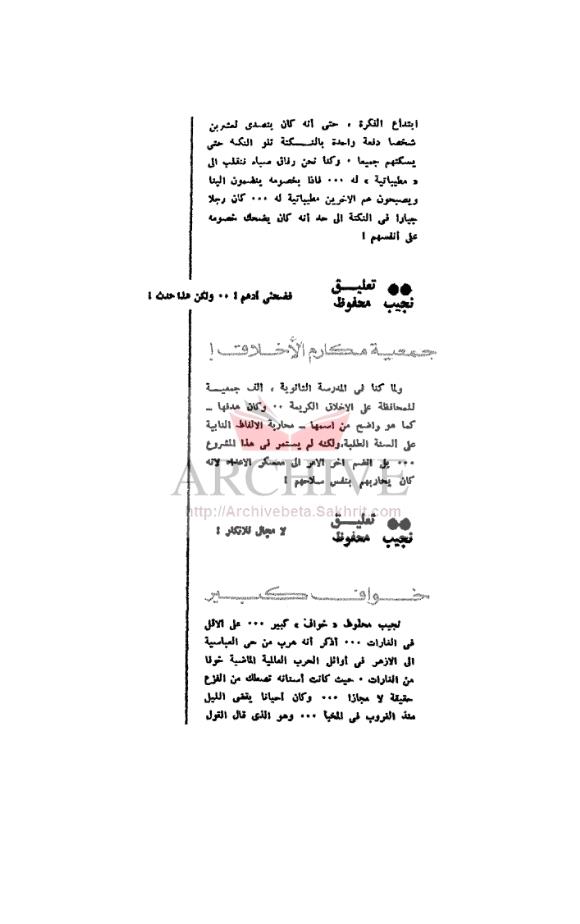 ابتداع الفكرة ، حتى أنه كان يتصدى لعشرين
شخصا دفعة واحدة بالنـكتة تلو النكتة حتى
يسكتهم جميعا ٠ وكنا نحن رفاق صباه ننقلب الى
« مطيباتية » له ٠٠٠ فاذا بخصومه ينضمون الينا
ويصبحون هم الآخرين مطيباتية له ٠٠٠ كان رجلا
جبارا فى النكتة الى حد أنه كان يضحك خصومه
على أنفسهم !
●● تعليـق
نجيب محفوظ
فضحنى أدهم ! ٠٠ ولكن هذا حدث !
جمعية مكارم الأخلاق !
ولما كنا فى المدرسة الثانوية ، ألف جمعيـة
للمحافظة على الاخلاق الكريمة ٠٠ وكان هدفها ــ
كما هو واضح من اسمها ــ محاربة الالفاظ النابية
على السنة الطلبة،ولكنه لم يستمر فى هذا المشروع
٠٠٠ بل انضم آخر الامر الى معسكر الاعداء لانه
كان يحاربهم بنفس سلاحهم !
ARCHIVE
http://Archivebeta.Sakhrit.com
●● تعليـق
نجيب محفوظ
لا مجال للانكار !
خواف كبير
نجيب محفوظ « خواف » كبير ٠٠٠ على الاقل
فى الغارات ٠٠٠ أذكر أنه هرب من حى العباسية
الى الازهر فى أوائل الحرب العالمية الماضية خوفا
من الغارات ٠ حيث كانت أسنانه تصطك من الفزع
حقيقة لا مجازا ٠٠٠ وكان أحيانا يقضى الليل
منذ الغروب فى المخبأ ٠٠٠ وهو الذى قال القول